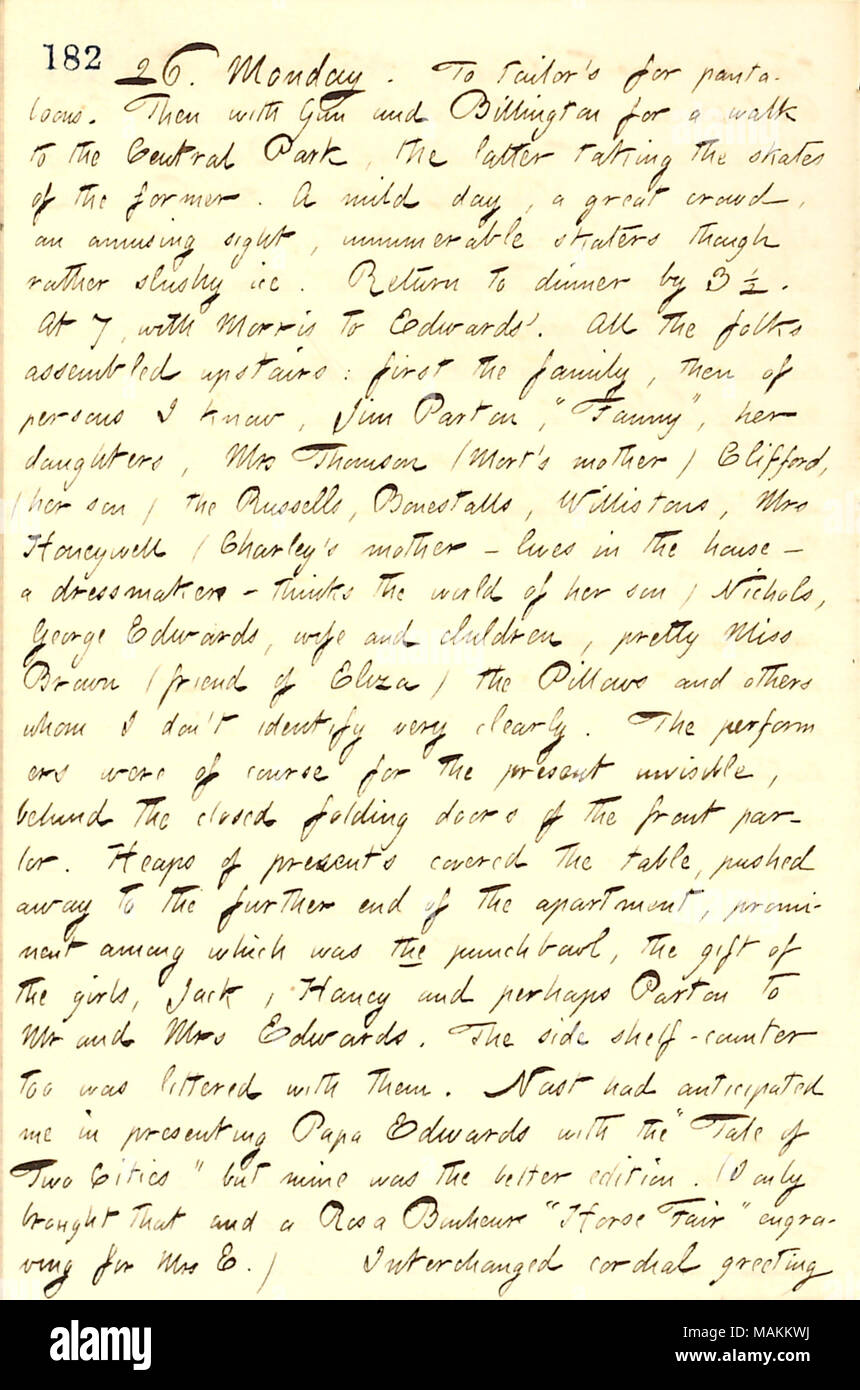 182
26. Monday. To tailor's for panta-
loons. Then with Gun and Billington for a walk
to the Central Park, the latter taking the skates
of the former. A mild day, a great crowd,
an amusing sight, innumerable skaters though
rather slushy ice. Return to dinner by 3 ½.
At 7, with Morris to Edwards'. All the folks
assembled upstairs: first the family, then of
persons I know, Jim Parton, "Fanny", her
daughters, Mrs Thomson (Mort's mother) Clifford,
(her son) the Russells, Bonestalls, Willistons, Mrs
Honeywell (Charley's mother - lives in the house -
a dressmaker - thinks the world of her son) Nichols,
George Edwards, wife and children, pretty Miss
Brown (friend of Eliza) the Pillows and others
whom I don't identify very clearly. The perform
ers were of course for the present invisible,
behind the closed folding doors of the front par-
lor. Heaps of presents covered the table, pushed
away to the further end of the apartment, promi-
nent among which was the punchbowl, the gift of
the girls, Jack, Haney and perhaps Parton to
Mr and Mrs Edwards. The side shelf-counter
too was littered with them. Nast had anticipated
me in presenting Papa Edwards with the "Tale of
Two Cities" but mine was the better edition. (I only
brought that and a Rosa Bonheur "Horse Fair" engra-
ving for Mrs E.) Interchanged cordial greeting
alamy
Image ID: MAKKWJ
www.alamy.com